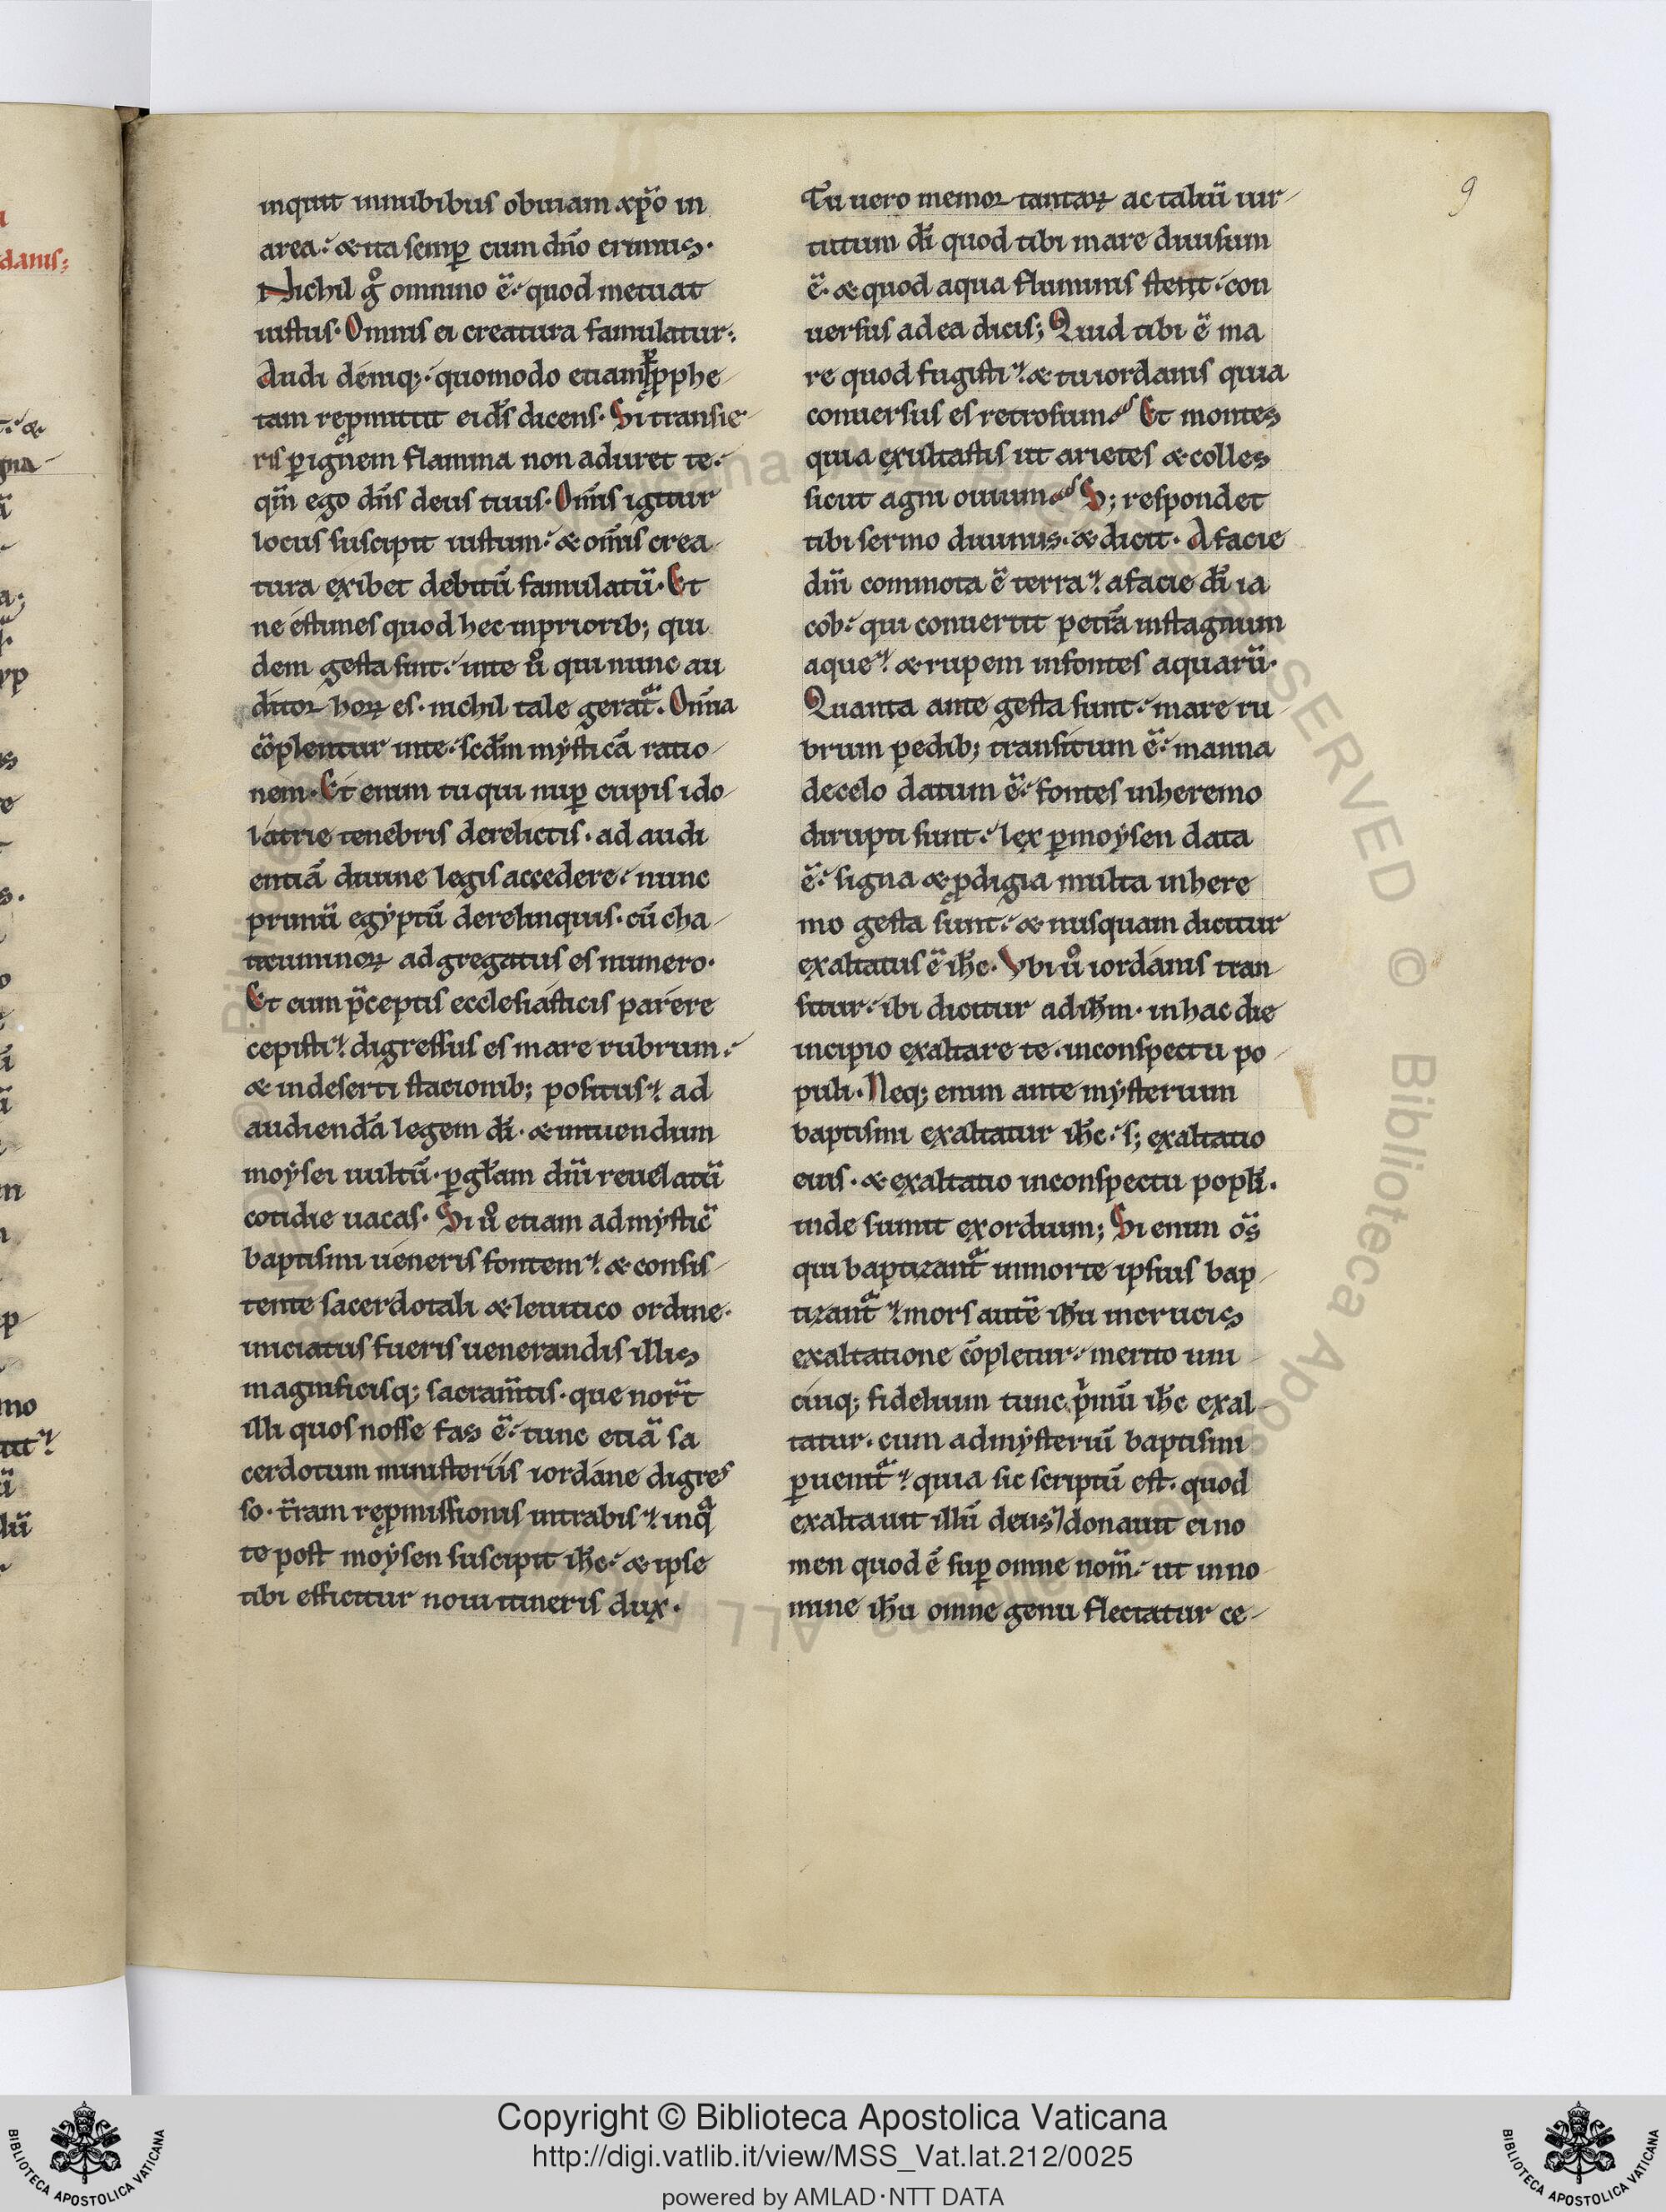 inquit in nubibus obuiam xp̄o in
aera. & ita semꝑ cum dn̄o erimus.
Nichil gͦ omnino ē. quod metuat
iustus. Omnis ei creatura famulatur.
Audi deniq;. quomodo etiam ꝑ ꝓphe-
tam reꝓmittit ei ds̄ dicens. Si transie-
ris ꝑ ignem flamma non aduret te.
qm̄ ego dn̄s deus tuus. Om̄is igitur
locus suscipit iustum. & om̄is crea-
tura exibet debitū famulatū. Et
ne estimes quod hec in priorib; qui
dem gesta sint. in te uͦ qui nunc au
ditor hoꝝ es. nichil tale gerat᷑. Om̄ia
cōplentur in te. scd̄m mysticā ratio-
nem. Et enim tu qui nuꝑ cupis ido-
latrie tenebris derelictis. ad audi
entiā diuine legis accedere. nunc
primū egyptū derelinquis. cū cha-
ticuminoꝝ adgregatus es numero.
Et cum p̄ceptis ecclesiasticis parere
cepisti. digressus es mare rubrum.
& in deserti stacionib; positus. ad
audiendā legem dī. & intuendum
moysei uultū. ꝑ gl̄am dn̄i reuelatū
cotidie uacas. Si uͦ etiam ad mysticū
baptismi ueneris fontem. & consis-
tente sacerdotali & leuitico ordine.
iniciatus fueris uenerandis illis
magnificisq; sacram̄tis. que nor̄t
illi quos nosse fas ē. tunc etiā sa
cerdotum ministeriis iordane digres
so. t̄ram reꝓmissionis intrabis. in qͣ
te post moysen suscipit ih̄c. & ipse
tibi efficitur noui itineris dux.
Tu uero memor tantaꝝ ac taliū uir-
tutum dī quod tibi mare diuisum
ē. & quod aqua fluminis stetit. con
uersus ad ea dicis; Quid tibi ē ma
re quod fugisti. & tu iordanis quia
conuersus es retrorsum. Et montes
quia exultastis ut arietes & colles
sicut agni ouium. S; respondet
tibi sermo diuinus. & dicit. A facie
dn̄i commota ē terra. a facie dī ia
cob. qui conuertit petrā in stagnum
aque. & rupem in fontes aquarū.
Quanta ante gesta sunt. mare ru-
brum pedib; transitum ē. manna
de celo datum ē. fontes in heremo
dirupti sunt. lex ꝑ moysen data
ē. signa & ꝓdigia multa in here
mo gesta sunt. & nusquam dicitur
exaltatus ē ih̄c. Vbi uͦ iordanis tran-
situr. ibi dicitur ad ih̄m. in hac die
incipio exaltare te. in conspectu po-
puli. Neq; enim ante mysterium
baptismi exaltatur ih̄c. s; exaltatio
eius. & exaltatio in conspectu popl̄i.
inde sumit exordium; Si enim os̄
qui baptizant᷑ in morte ipsius bap-
tizant᷑. mors autē ih̄u in crucis
exaltatione cōpletur. merito uni-
cuiq; fidelium tunc p̍mū ih̄c exal-
tatur. cum ad mysteriū baptismi
ꝑuenit᷑. quia sic scriptū est. quod
exaltauit illū deus ⁊ donauit ei no
men quod ē suꝑ omne nom̄. ut in no-
mine ih̄u omne genu flectatur ce-
9
Copyright © Biblioteca Apostolica Vaticana
http://digi.vatlib.it/view/MSS_Vat.lat.212/0025
powered by AMLAD·NTT DATA